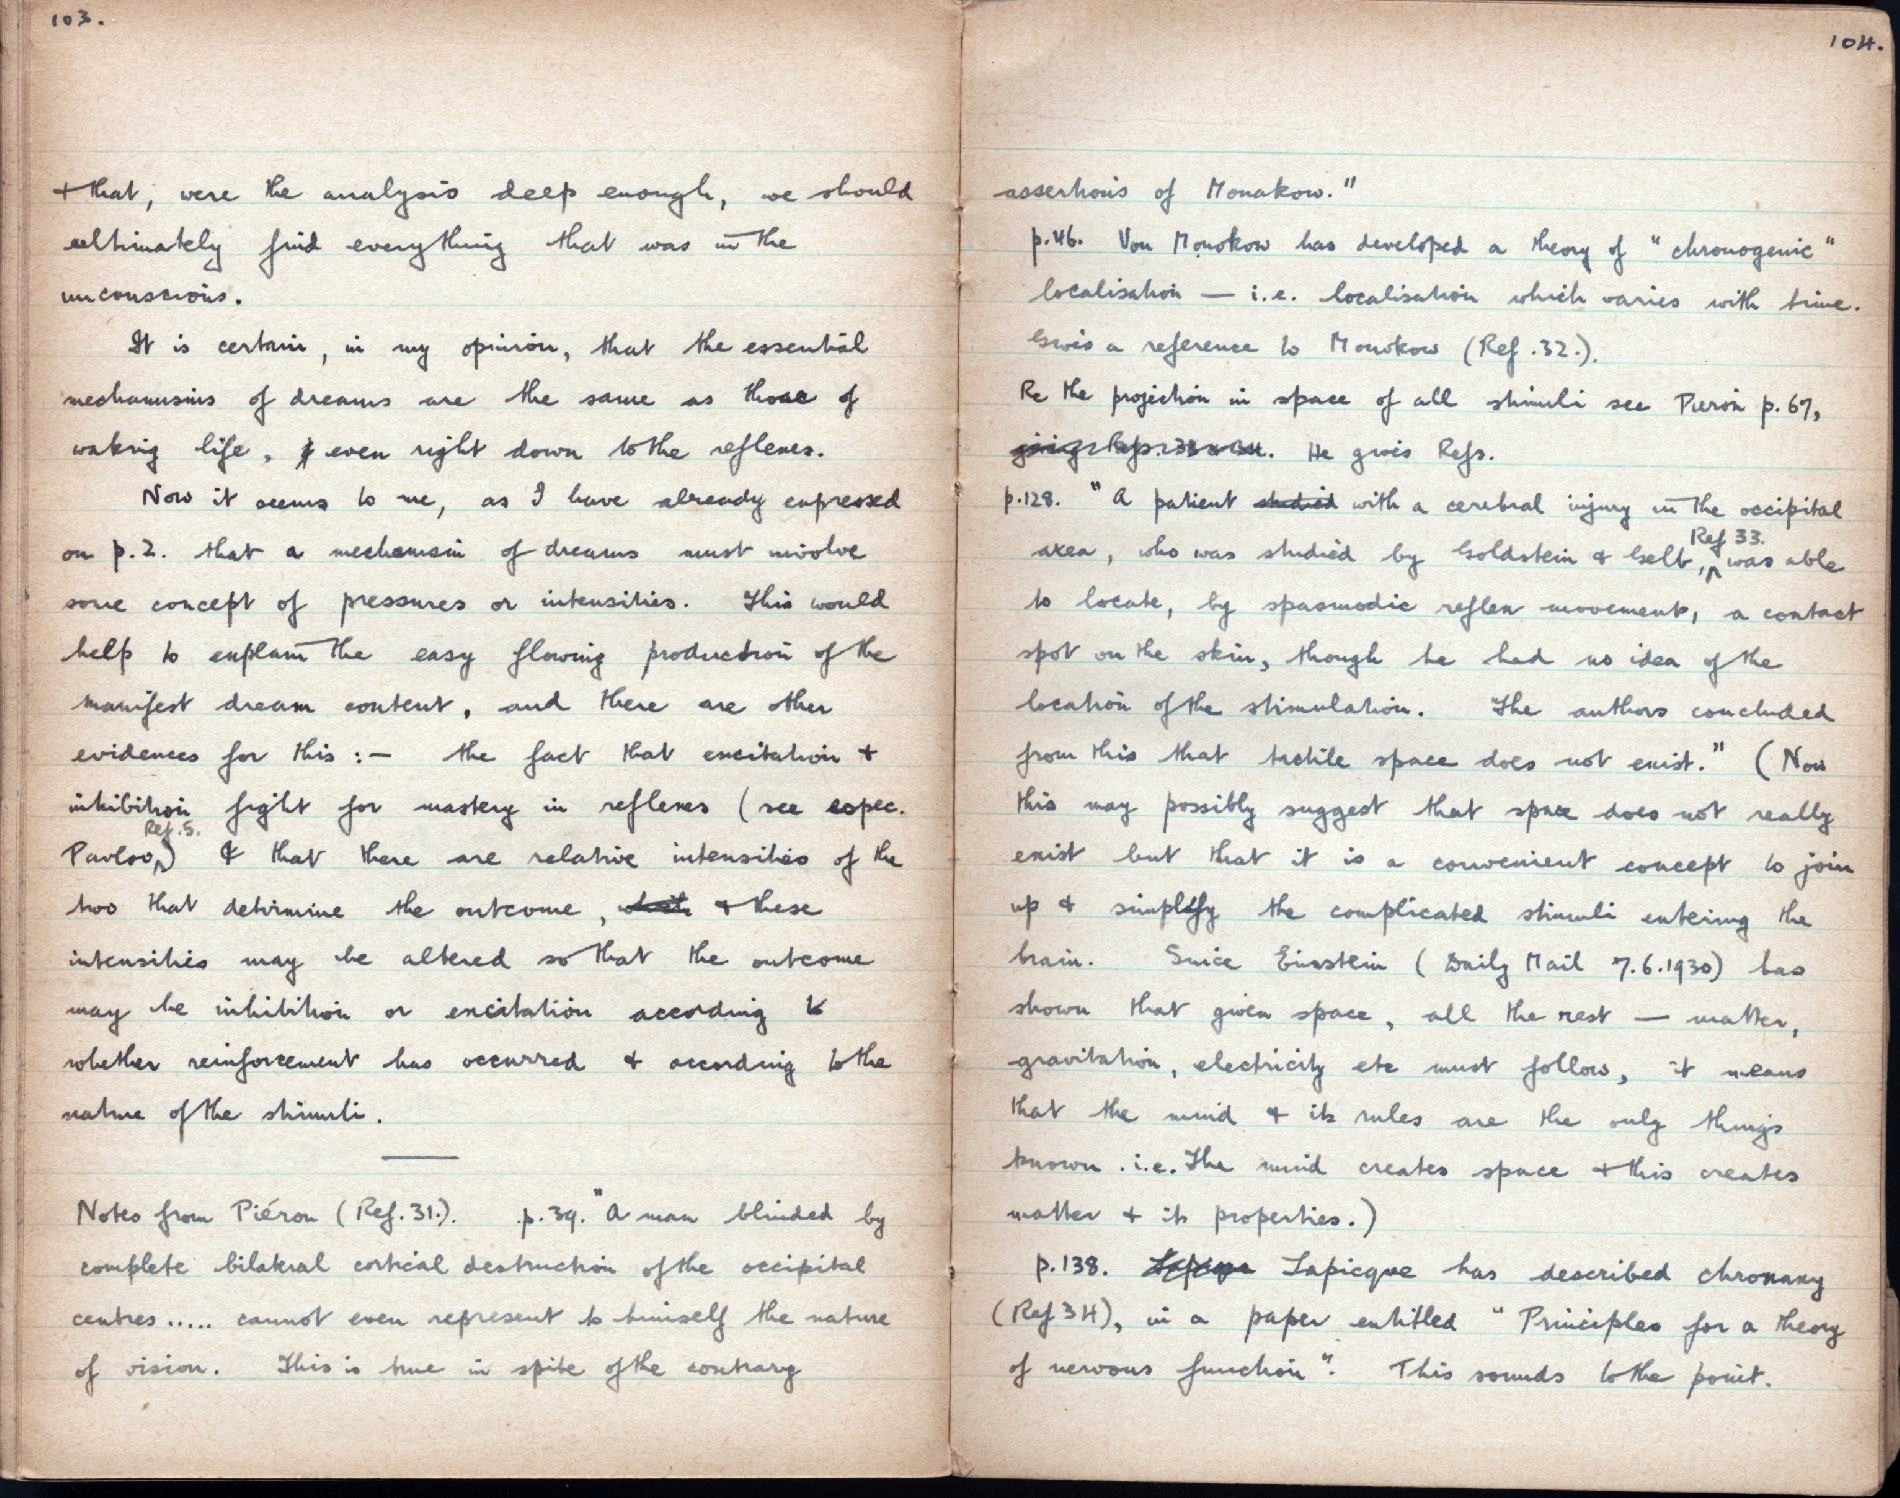 103.
+ that, were the analysis deep enough, we should
ultimately find everything that was in the
unconscious.
It is certain, in my opinion, that the essential
mechanisms of dreams are the same as those of
waking life, even right down to the reflexes.
Now it seems to me, as I have already expressed
on p.2. that a mechanism of dreams must involve
some concept of pressures or intensities. This would
help to explain the easy flowing production of the
manifest dream content, and there are other
evidences for this :— the fact that excitation +
inhibition fight for mastery in reflexes (see espec.
Ref.5.
Pavlov) & that there are relative intensities of the
two that determine the outcome, which + these
intensities may be altered so that the outcome
may be inhibition or excitation according to
whether reinforcement has occurred & according to the
nature of the stimuli.
Notes from Piéron (Ref.31.). p.39. "A man blinded by
complete bilateral cortical destruction of the occipital
centres ..... cannot even represent to himself the nature
of vision. This is true in spite of the contrary
104.
assertions of Monakow."
p.46. Von Monakow has developed a theory of "chronogenic"
localisation — i.e. localisation which varies with time.
Gives a reference to Monakow (Ref.32.).
Re the projection in space of all stimuli see Pieron p.67,
He gives Refs.
p.128. "A patient studied with a cerebral injury in the occipital
Ref 33.
area, who was studied by Goldstein & Gelb, was able
to locate, by spasmodic reflex movements, a contact
spot on the skin, though he had no idea of the
location of the stimulation. The authors concluded
from this that tactile space does not exist." (Now
this may possibly suggest that space does not really
exist but that it is a convenient concept to join
up & simplify the complicated stimuli entering the
brain. Since Einstein (Daily Mail 7.6.1930) has
shown that given space, all the rest — matter,
gravitation, electricity etc must follow, it means
that the mind & its rules are the only things
known. i.e. The mind creates space + this creates
matter + its properties.)
p.138. Lapicque has described chronaxy
(Ref 34), in a paper entitled "Principles for a theory
of nervous function". This sounds to the point.